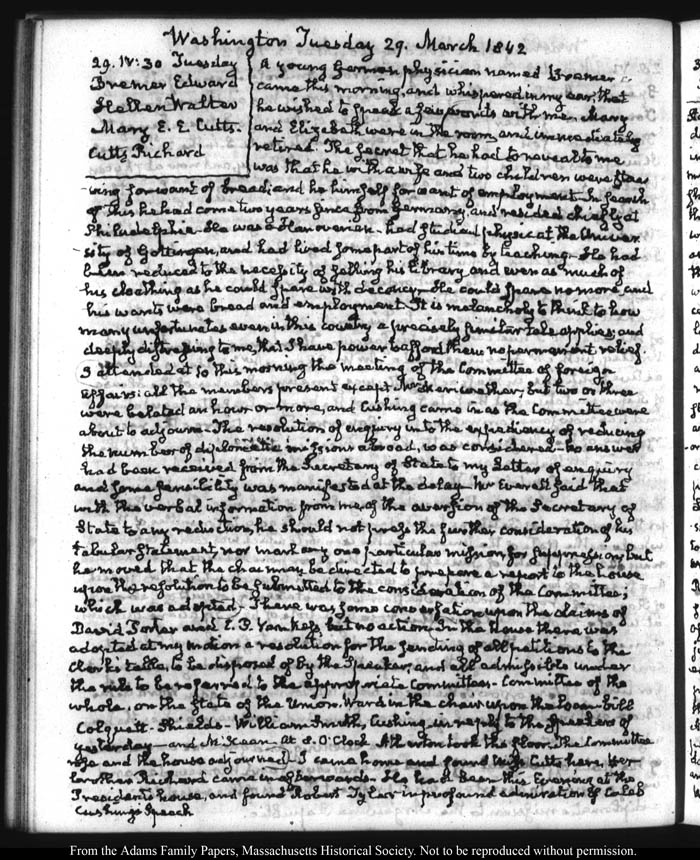 Washington Tuesday 29. March 1842
29. IV:30 Tuesday
Bremer Edward
Hellen Walter
Mary E. E. Cutts.
Cutts Richard
A young German physician named Bremer
came this morning, and whispered in my ear, that
he wished to speak a few words with me. Mary
and Elizabeth were in the room and immediately
retired. The secret that he had to reveal to me
was that he with a wife and two children were star
ving for want of bread; and he himself for want of employment. In search
of this he had come two years since from Germany, and resided chiefly at
Philadelphia. He was a Hanoverian. had studied physic at the Univer
sity of Gottingen, and had lived some part of his time by teaching. He had
been reduced to the necessity of selling his library and even as much of
his cloathing as he could spare with decency. He could spare no more and
his wants were bread and employment. It is melancholy to think to how
many unfortunates even in this country a precisely similar tale applies; and
deeply distressing to me, that I have power to afford them no permanent relief.
I attended at 10 this morning the meeting of the Committee of foreign
affairs: all the members present except Mr Meriwether, but two or three
were belated an hour or more, and Cushing came in as the Committee were
about to adjourn. The resolution of enquiry into the expediency of reducing
the number of diplomatic missions abroad, was considered. No answer
had been received from the Secretary of State to my Letter of enquiry
and some sensibility was manifested at the delay. Mr Everett said that
with the verbal information from me of the aversion of the Secretary of
State to any reduction, he should not press the further consideration of his
tabular statement, nor mark any one particular mission for suppression, but
he moved that the chair may be directed to prepare a report to the house
upon the resolution to be submitted to the consideration of the Committee;
which was adopted. There was some conversation upon the claims of
David Porter and E. D. but no action. In the House there was
adopted at my motion a resolution for the sending of all petitions to the
Clerk's table, to be disposed of by the Speaker, and all admissible under
the rule to be referred to the appropriate Committees. Committee of the
whole, on the State of the Union. Ward in the chair upon the loan-bill
Colquitt. Shields. William Smith, Cushing in reply to the Speakers of
yesterday—and McKean. At 3. O'Clock Atherton took the floor. The Committee
rose and the house adjourned. I came home and found Miss Cutts here. Her
brother Richard came in afterwards. He had been this Evening at the
President's house, and found Robert Tyler in profound admiration of Caleb
Cushing's Speech
From the Adams Family Papers, Massachusetts Historical Society. Not to be reproduced without permission.